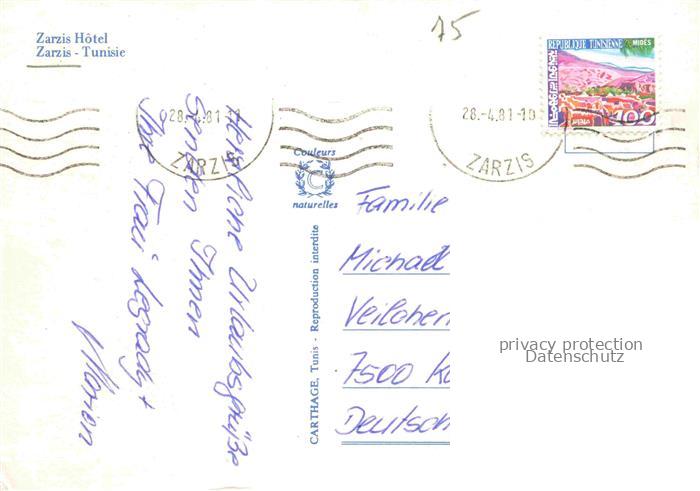 Zarzis Hôtel
Zarzis - Tunisie
75
REPUBLIQUE TUNISIENNE
MIDÈS
100
28.-4.81-10
ZARZIS
28.-4.81-10
ZARZIS
Couleurs
C
naturelles
CARTHAGE, Tunis - Reproduction interdite
Herzliche Urlaubsgrüße
senden Ihnen
Ihre Frau +
Familie
Michael
Veilchen
7500 Ka
Deutsch
privacy protection
Datenschutz